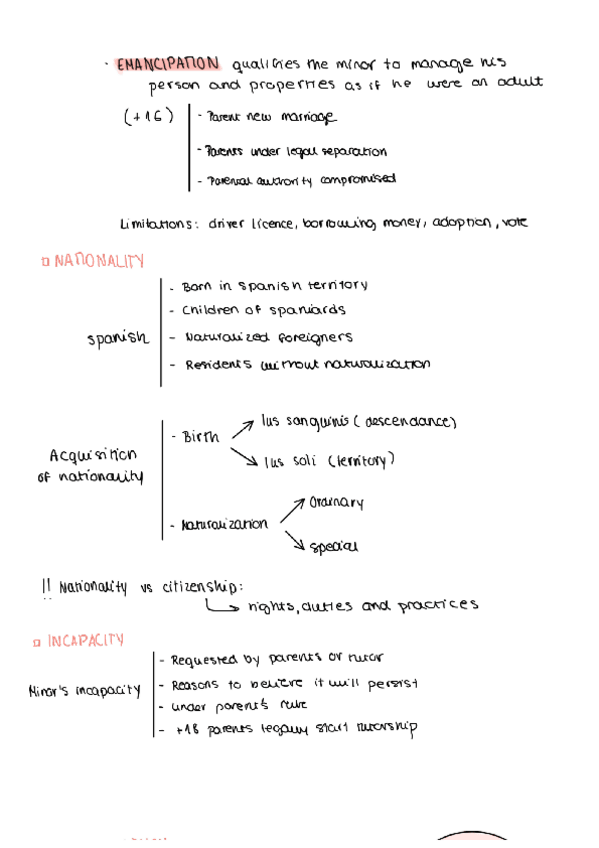 · EMANCIPATION qualifies the minor to manage his
person and properties as if he were an adult
(+16)
- Parent new marriage
- Parents under legal separation
- Parental authority compromised
Limitations: driver licence, borrowing money, adoption, vote
NATIONALITY
spanish
- Born in spanish territory
- Children of spaniards
- Naturalized foreigners
- Residents without naturalization
Acquisition
of nationality
- Birth
Ius sanguinis (descendance)
Ius soli (territory)
- Naturalization
Ordinary
Special
!! Nationality vs citizenship:
rights, duties and practices
INCAPACITY
Minor's incapacity
- Requested by parents or tutor
- Reasons to believe it will persist
- under parent's rule
- +18 parents legally start tutorship